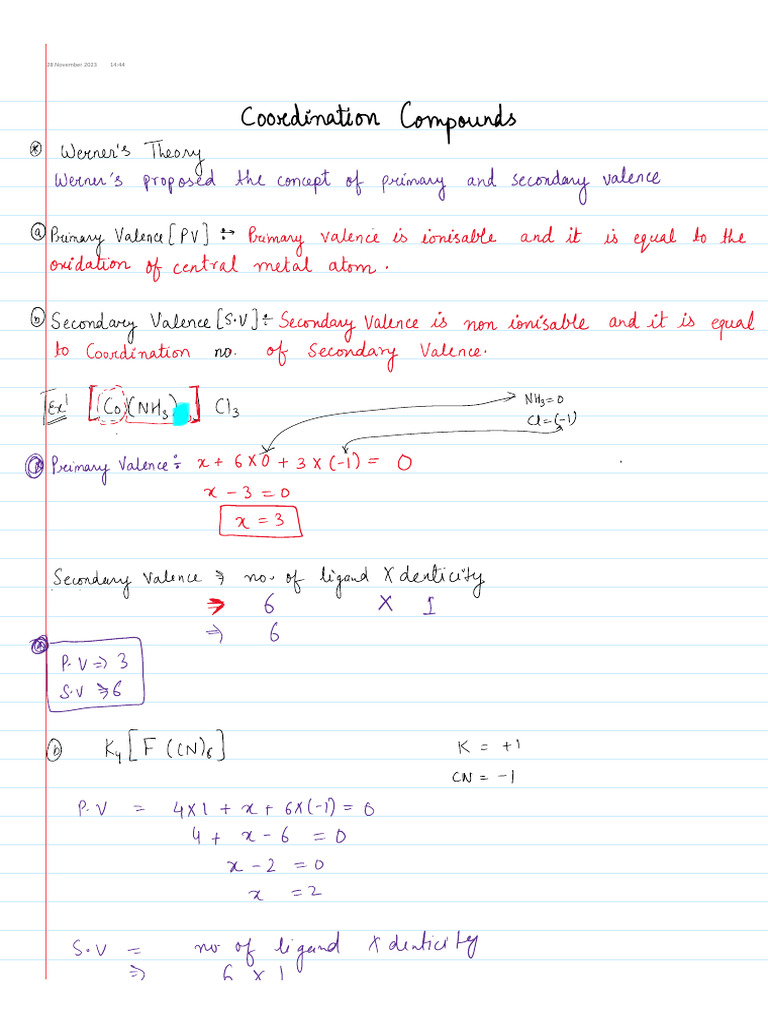 28 November 2023 14:44
Coordination Compounds
* Werner's Theory
Werner's proposed the concept of primary and secondary valence
(a) Primary Valence [PV] :- Primary valence is ionisable and it is equal to the
oxidation of central metal atom.
(b) Secondary Valence [S.V] :- Secondary Valence is non ionisable and it is equal
to Coordination no. of Secondary Valence.
Ex! [Co(NH₃) ] Cl₃
NH₃ = 0
Cl = (-1)
(a) Primary Valence :- x + 6 × 0 + 3 × (-1) = 0
x - 3 = 0
x = 3
Secondary Valence ⇒ no. of ligand × denticity
⇒ 6 × 1
⇒ 6
P.V ⇒ 3
S.V ⇒ 6
(b) K₄[F(CN)₆]
K = +1
CN = -1
P.V = 4×1 + x + 6×(-1) = 0
4 + x - 6 = 0
x - 2 = 0
x = 2
S.V = no of ligand × denticity
⇒ 6 × 1